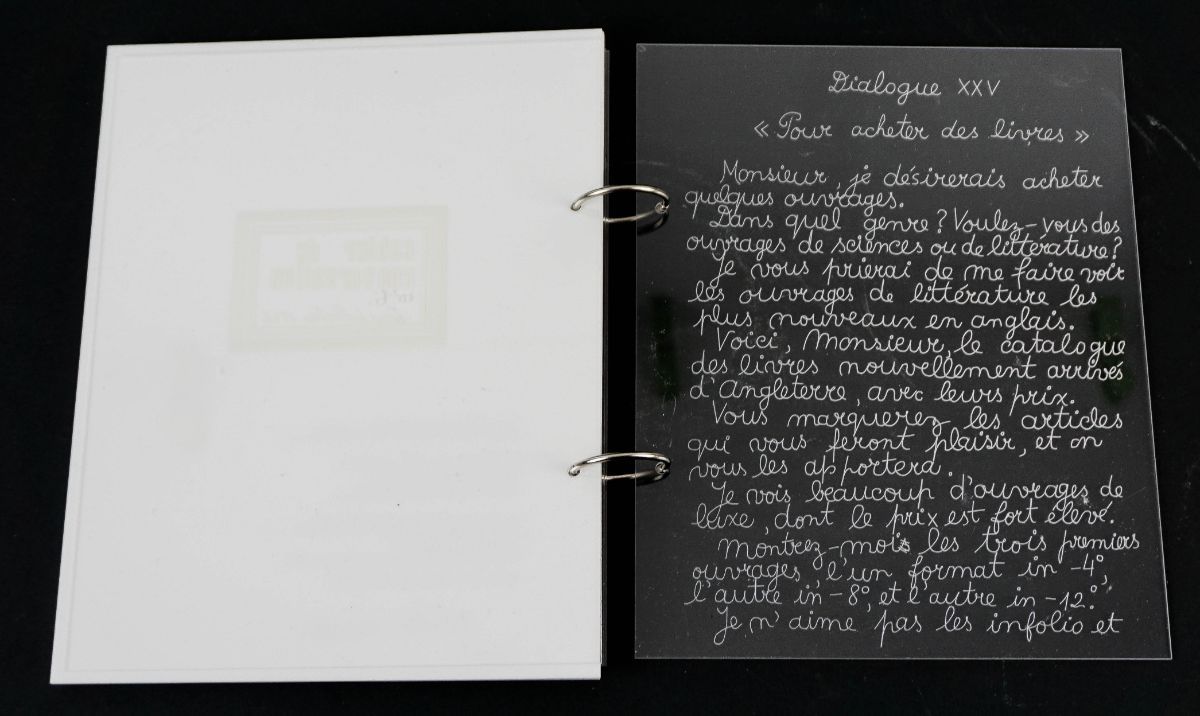 Dialogue XXV
« Pour acheter des livres »
Monsieur, je désirerais acheter
quelques ouvrages.
Dans quel genre ? Voulez-vous des
ouvrages de sciences ou de littérature ?
Je vous prierai de me faire voir
les ouvrages de littérature les
plus nouveaux en anglais.
Voici, Monsieur, le catalogue
des livres nouvellement arrivés
d'Angleterre, avec leurs prix.
Vous marquerez les articles
qui vous feront plaisir, et on
vous les apportera.
Je vois beaucoup d'ouvrages de
luxe, dont le prix est fort élevé.
Montrez-mois les trois premiers
ouvrages, l'un format in-4°,
l'autre in-8°, et l'autre in-12°.
Je n'aime pas les infolio et